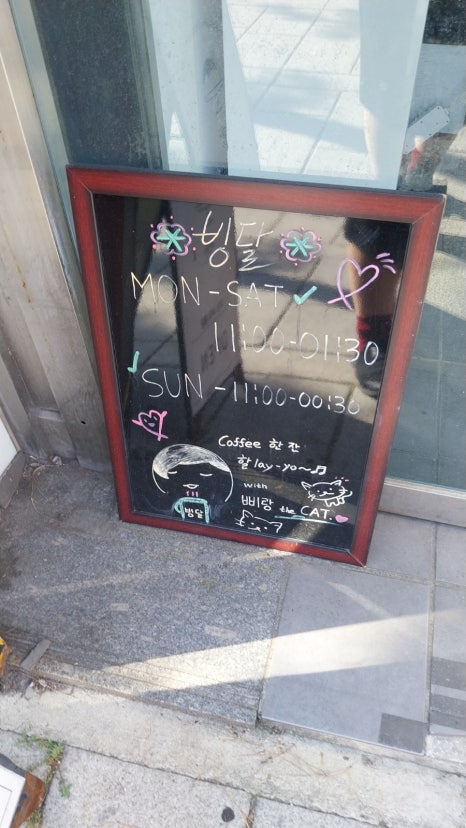 빙달
MON-SAT
11:00-01:30
SUN-11:00-00:30
Coffee 한 잔
할lay-yo~♫
with
삐랑 the CAT.
빙달